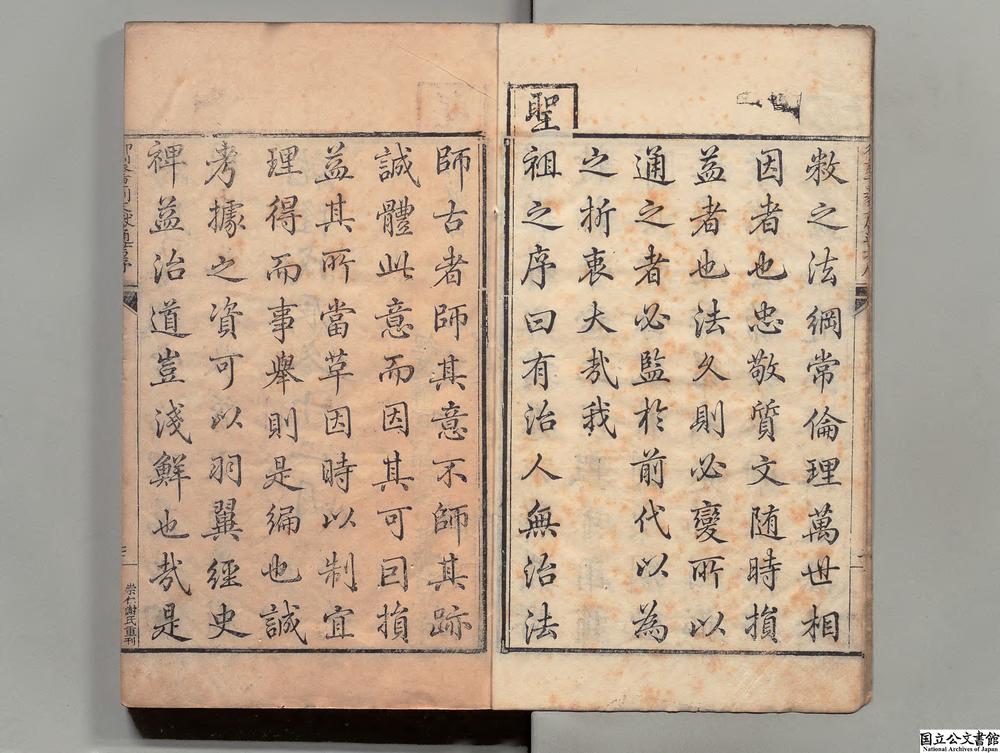 敎之法綱常倫理萬世相
因者也忠敬質文随時損
益者也法久則必變所以
通之者必監於前代以為
之折衷大哉我
聖祖之序曰有治人無治法
師古者師其意不師其跡
誠體此意而因其可因損
益其所當革因時以制宜
理得而事舉則是編也誠
考據之資可以羽翼經史
裨益治道豈淺鮮也哉是
崇仁謝氏重刊
国立公文書館
National Archives of Japan